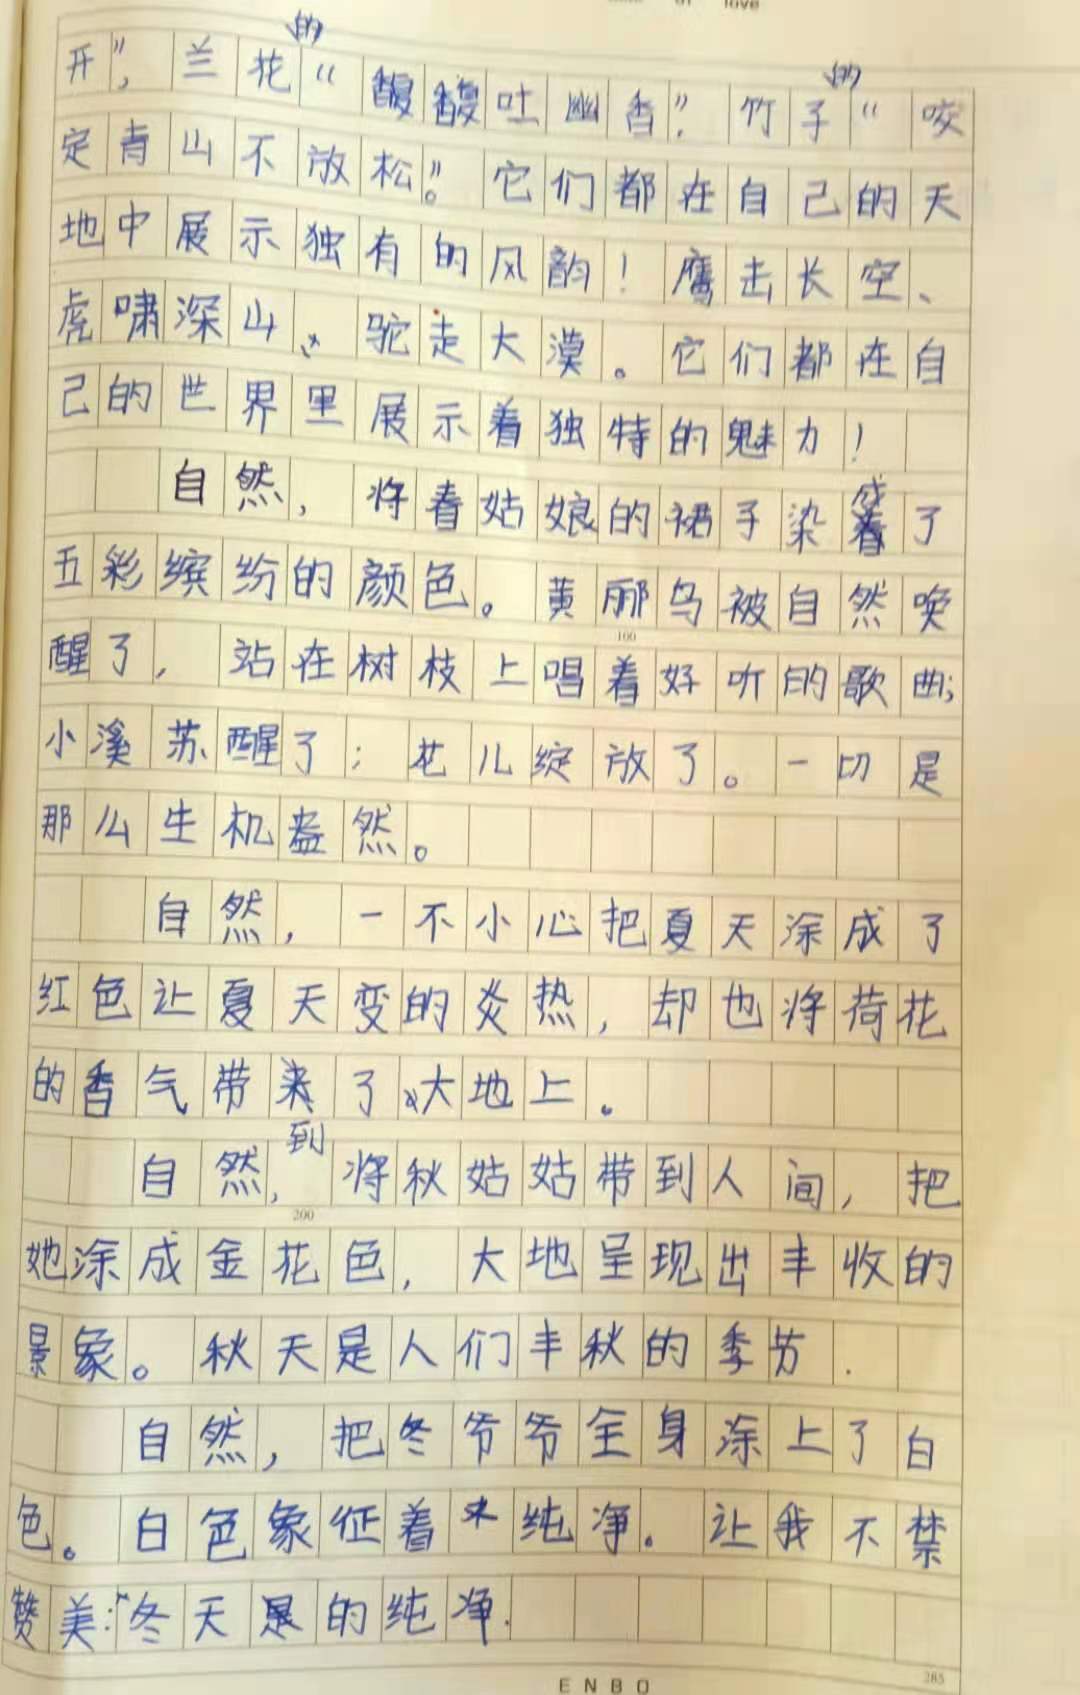 的 的
开”,兰花“馥馥吐幽香”?竹子“咬
定青山不放松”。它们都在自己的天
地中展示独有的风韵!鹰击长空、
虎啸深山、驼走大漠。它们都在自
己的世界里展示着独特的魅力!
自然,将春姑娘的裙子染成了
五彩缤纷的颜色。黄鹂鸟被自然唤
100
醒了,站在树枝上唱着好听的歌曲;
小溪苏醒了;花儿绽放了。一切是
那么生机盎然。
自然,一不小心把夏天涂成了
红色让夏天变的炎热,却也将荷花
的香气带来了大地上。
到
自然,将秋姑姑带到人间,把
200
她涂成金花色,大地呈现出丰收的
景象。秋天是人们丰秋的季节.
自然,把冬爷爷全身涂上了白
色。白色象征着纯净.让我不禁
赞美:“冬天是的纯净.
285
ENBO